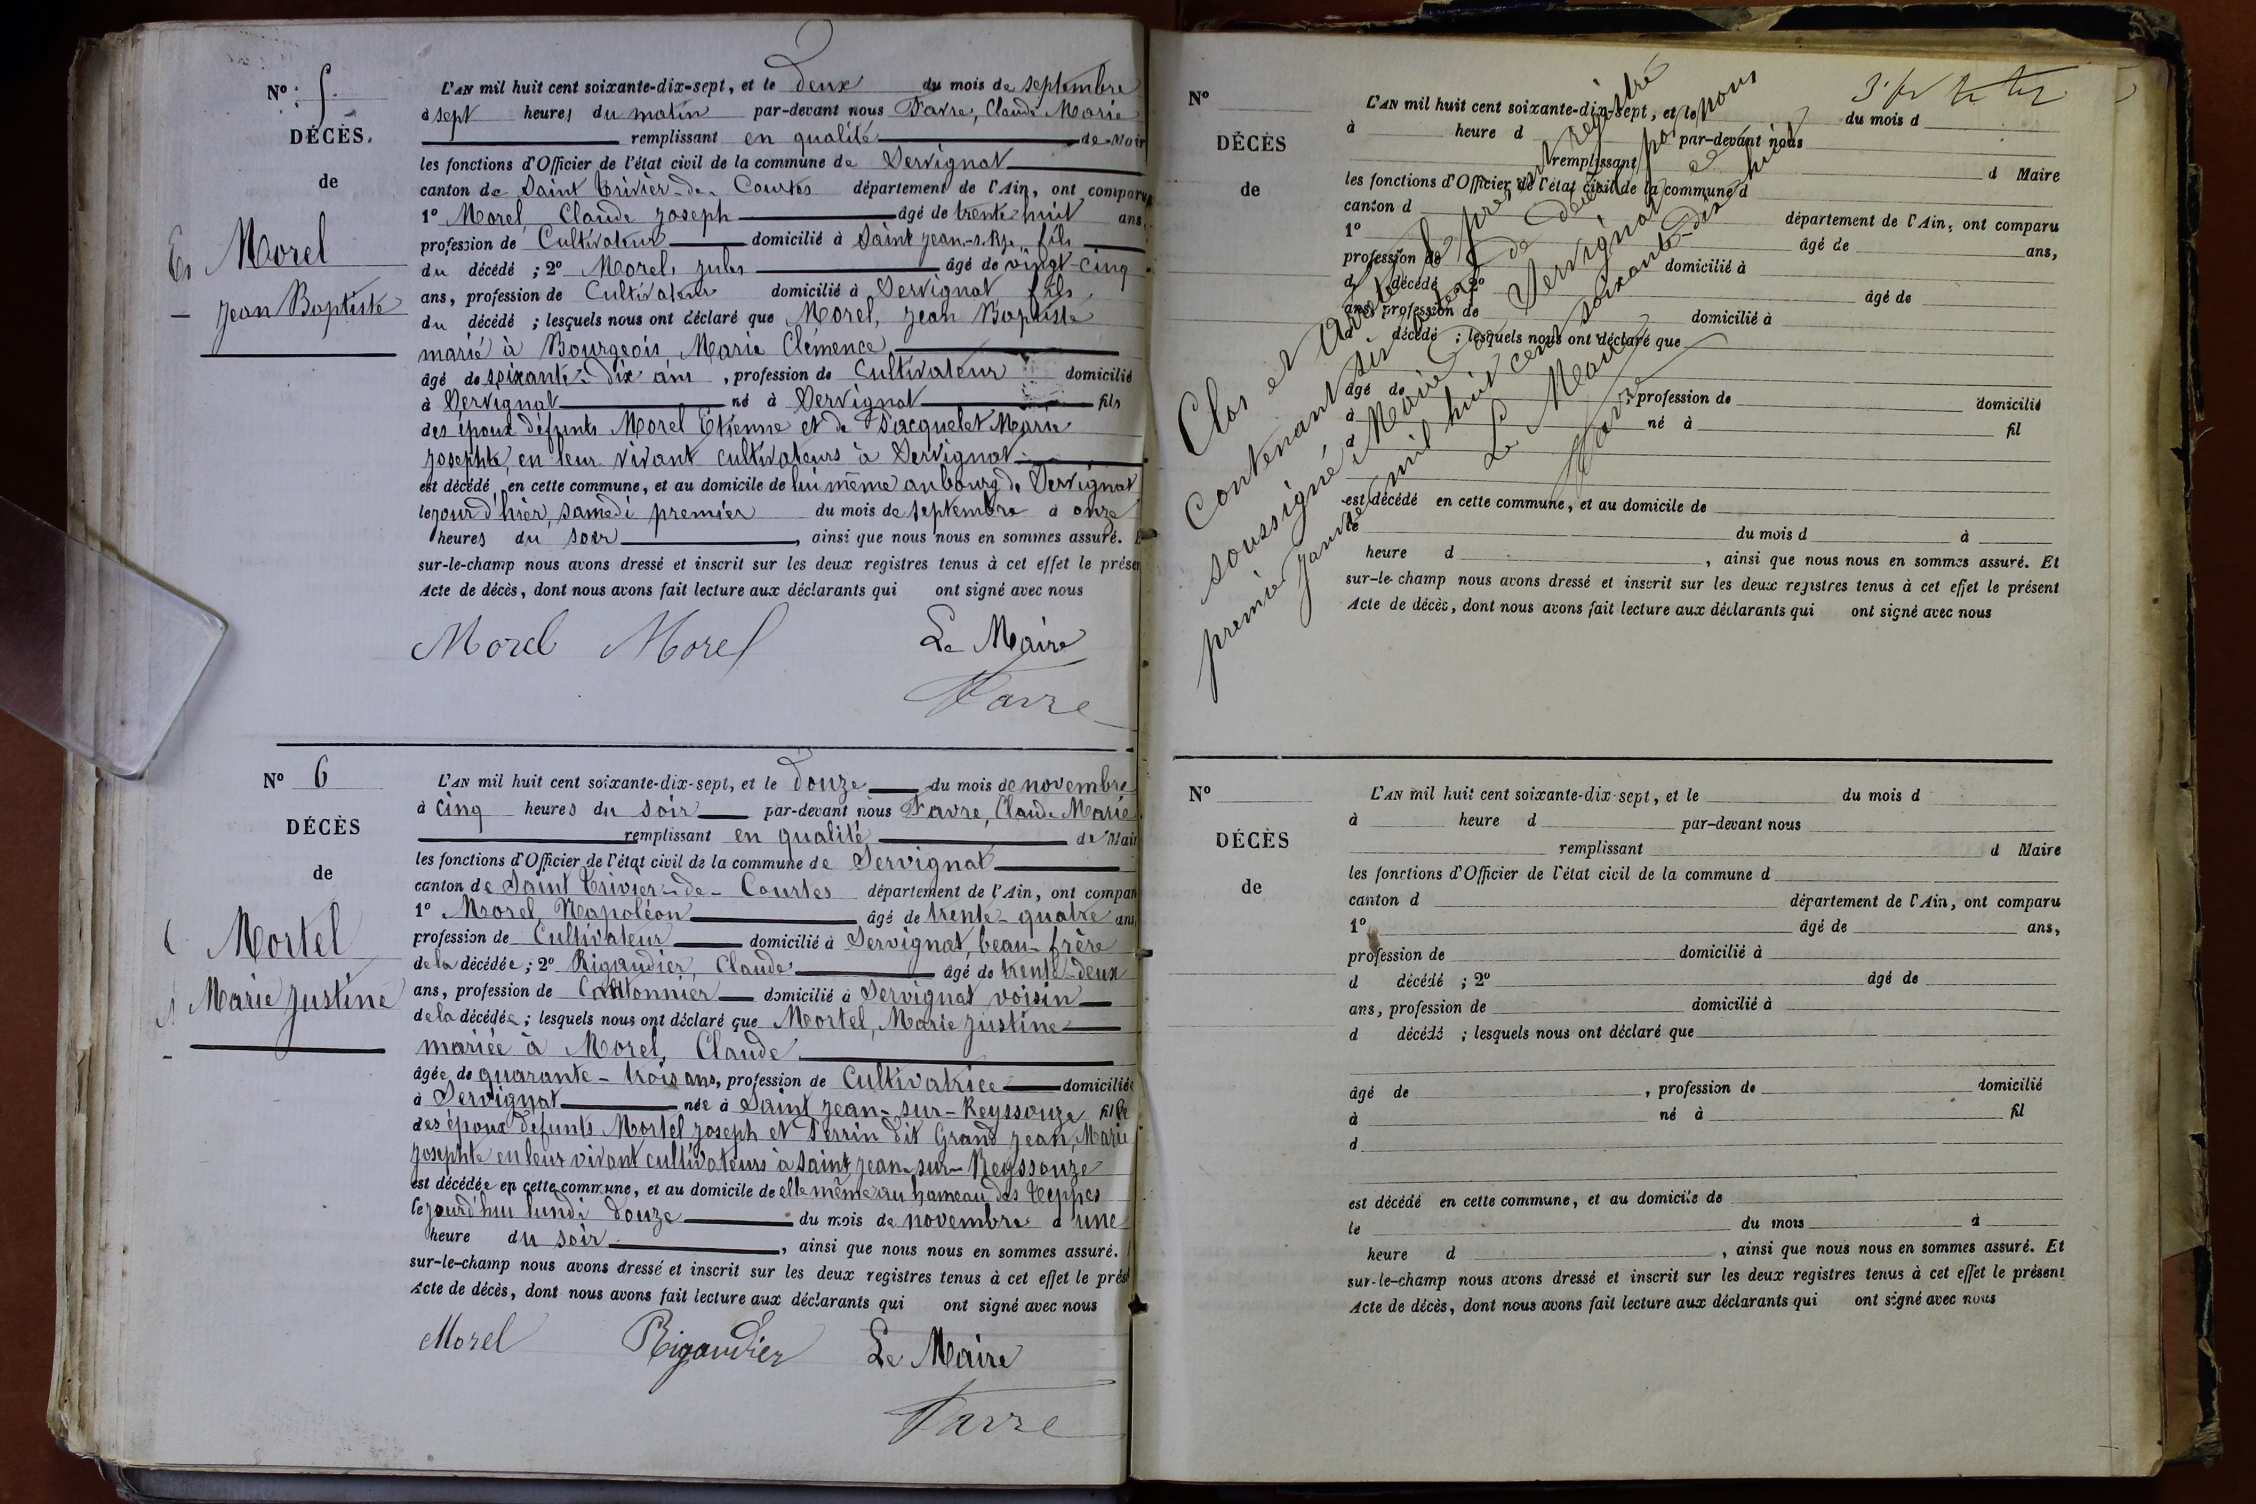 N° 5.
DÉCÈS.
de
Morel
Jean Baptiste
L'AN mil huit cent soixante-dix-sept, et le deux du mois de septembre
à sept heures du matin par-devant nous Favre, Claude Marie
remplissant en qualité de Mair
les fonctions d'Officier de l'état civil de la commune de Servignat
canton de Saint Trivier-de-Courtes département de l'Ain, ont comparu
1° Morel, Claude Joseph âgé de trente-huit ans,
profession de Cultivateur domicilié à Saint Jean-s.-Rze, fils
du décédé ; 2° Morel, Jules âgé de vingt-cinq
ans, profession de Cultivateur domicilié à Servignat fils
du décédé ; lesquels nous ont déclaré que Morel, Jean Baptiste
marié à Bourgeois, Marie Clémence
âgé de soixante-dix ans, profession de Cultivateur domicilié
à Servignat né à Servignat fils
des époux défunts Morel Etienne et de Pacquelet Marie
Josephte, en leur vivant cultivateurs à Servignat
est décédé en cette commune, et au domicile de lui même au bourg de Servignat
le jour d'hier, samedi premier du mois de septembre à onze
heures du soir, ainsi que nous nous en sommes assuré. E
sur-le-champ nous avons dressé et inscrit sur les deux registres tenus à cet effet le présen
Acte de décès, dont nous avons fait lecture aux déclarants qui ont signé avec nous
Morel Morel Le Maire
Favre
N° 6
DÉCÈS
de
Mortel
Marie Justine
L'AN mil huit cent soixante-dix-sept, et le douze du mois de novembre
à cinq heures du soir par-devant nous Favre, Claude Marie
remplissant en qualité de Mair
les fonctions d'Officier de l'état civil de la commune de Servignat
canton de Saint Trivier-de-Courtes département de l'Ain, ont compar
1° Morel, Napoléon âgé de trente-quatre ans
profession de Cultivateur domicilié à Servignat, beau-frère
de la décédée ; 2° Rigaudier, Claude âgé de trente-deux
ans, profession de Cantonnier domicilié à Servignat voisin
de la décédée ; lesquels nous ont déclaré que Mortel, Marie Justine
mariée à Morel, Claude
âgée de quarante-trois ans, profession de Cultivatrice domiciliée
à Servignat née à Saint Jean-sur-Reyssouze fille
des époux défunts Mortel Joseph et Perrin dit Grand Jean, Marie
Josephte en leur vivant cultivateurs à Saint Jean-sur-Reyssouze
est décédée en cette commune, et au domicile de elle même au hameau des Teppes
le jourd'hui lundi douze du mois de novembre à une
heure du soir, ainsi que nous nous en sommes assuré.
sur-le-champ nous avons dressé et inscrit sur les deux registres tenus à cet effet le prés
Acte de décès, dont nous avons fait lecture aux déclarants qui ont signé avec nous
Morel Rigaudier Le Maire
Favre
Clos et arrêté le présent registre
contenant six actes de décès par nous
soussigné, Maire de Servignat le
premier janvier mil huit cent soixante-dix-huit
Le Maire
Favre
N°
DÉCÈS
de
L'AN mil huit cent soixante-dix-sept, et le du mois d
à heure d par-devant nous
remplissant d Maire
les fonctions d'Officier de l'état civil de la commune d
canton d département de l'Ain, ont comparu
1° âgé de ans,
profession de domicilié à
d décédé ; 2° âgé de
ans, profession de domicilié à
d décédé ; lesquels nous ont déclaré que
âgé de , profession de domicilié
à né à fil
d
est décédé en cette commune, et au domicile de
le du mois d à
heure d , ainsi que nous nous en sommes assuré. Et
sur-le-champ nous avons dressé et inscrit sur les deux registres tenus à cet effet le présent
Acte de décès, dont nous avons fait lecture aux déclarants qui ont signé avec nous
N°
DÉCÈS
de
L'AN mil huit cent soixante-dix-sept, et le du mois d
à heure d par-devant nous
remplissant d Maire
les fonctions d'Officier de l'état civil de la commune d
canton d département de l'Ain, ont comparu
1° âgé de ans,
profession de domicilié à
d décédé ; 2° âgé de
ans, profession de domicilié à
d décédé ; lesquels nous ont déclaré que
âgé de , profession de domicilié
à né à fil
d
est décédé en cette commune, et au domicile de
le du mois à
heure d , ainsi que nous nous en sommes assuré. Et
sur-le-champ nous avons dressé et inscrit sur les deux registres tenus à cet effet le présent
Acte de décès, dont nous avons fait lecture aux déclarants qui ont signé avec nous